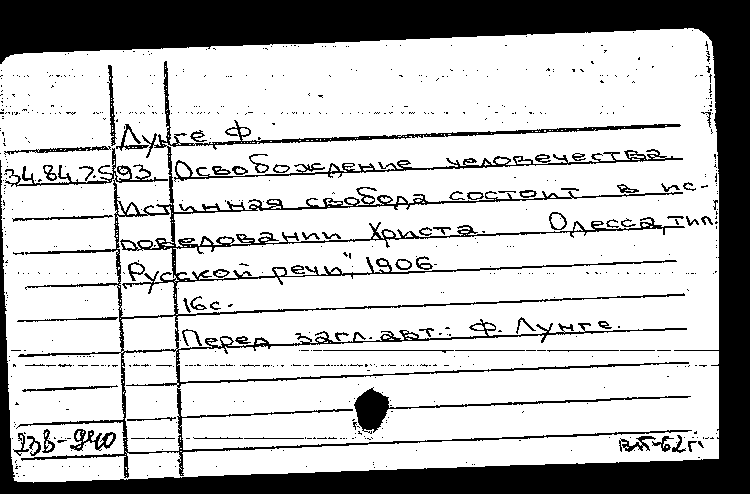 Лунге, Ф.
34.84.7.593. Освобождение человечества.
Истинная свобода состоит в ис-
поведовании Христа. Одесса, тип.
"Русской речи", 1906
16с.
Перед загл. авт.: Ф. Лунге.
23в-940
ВП-62г